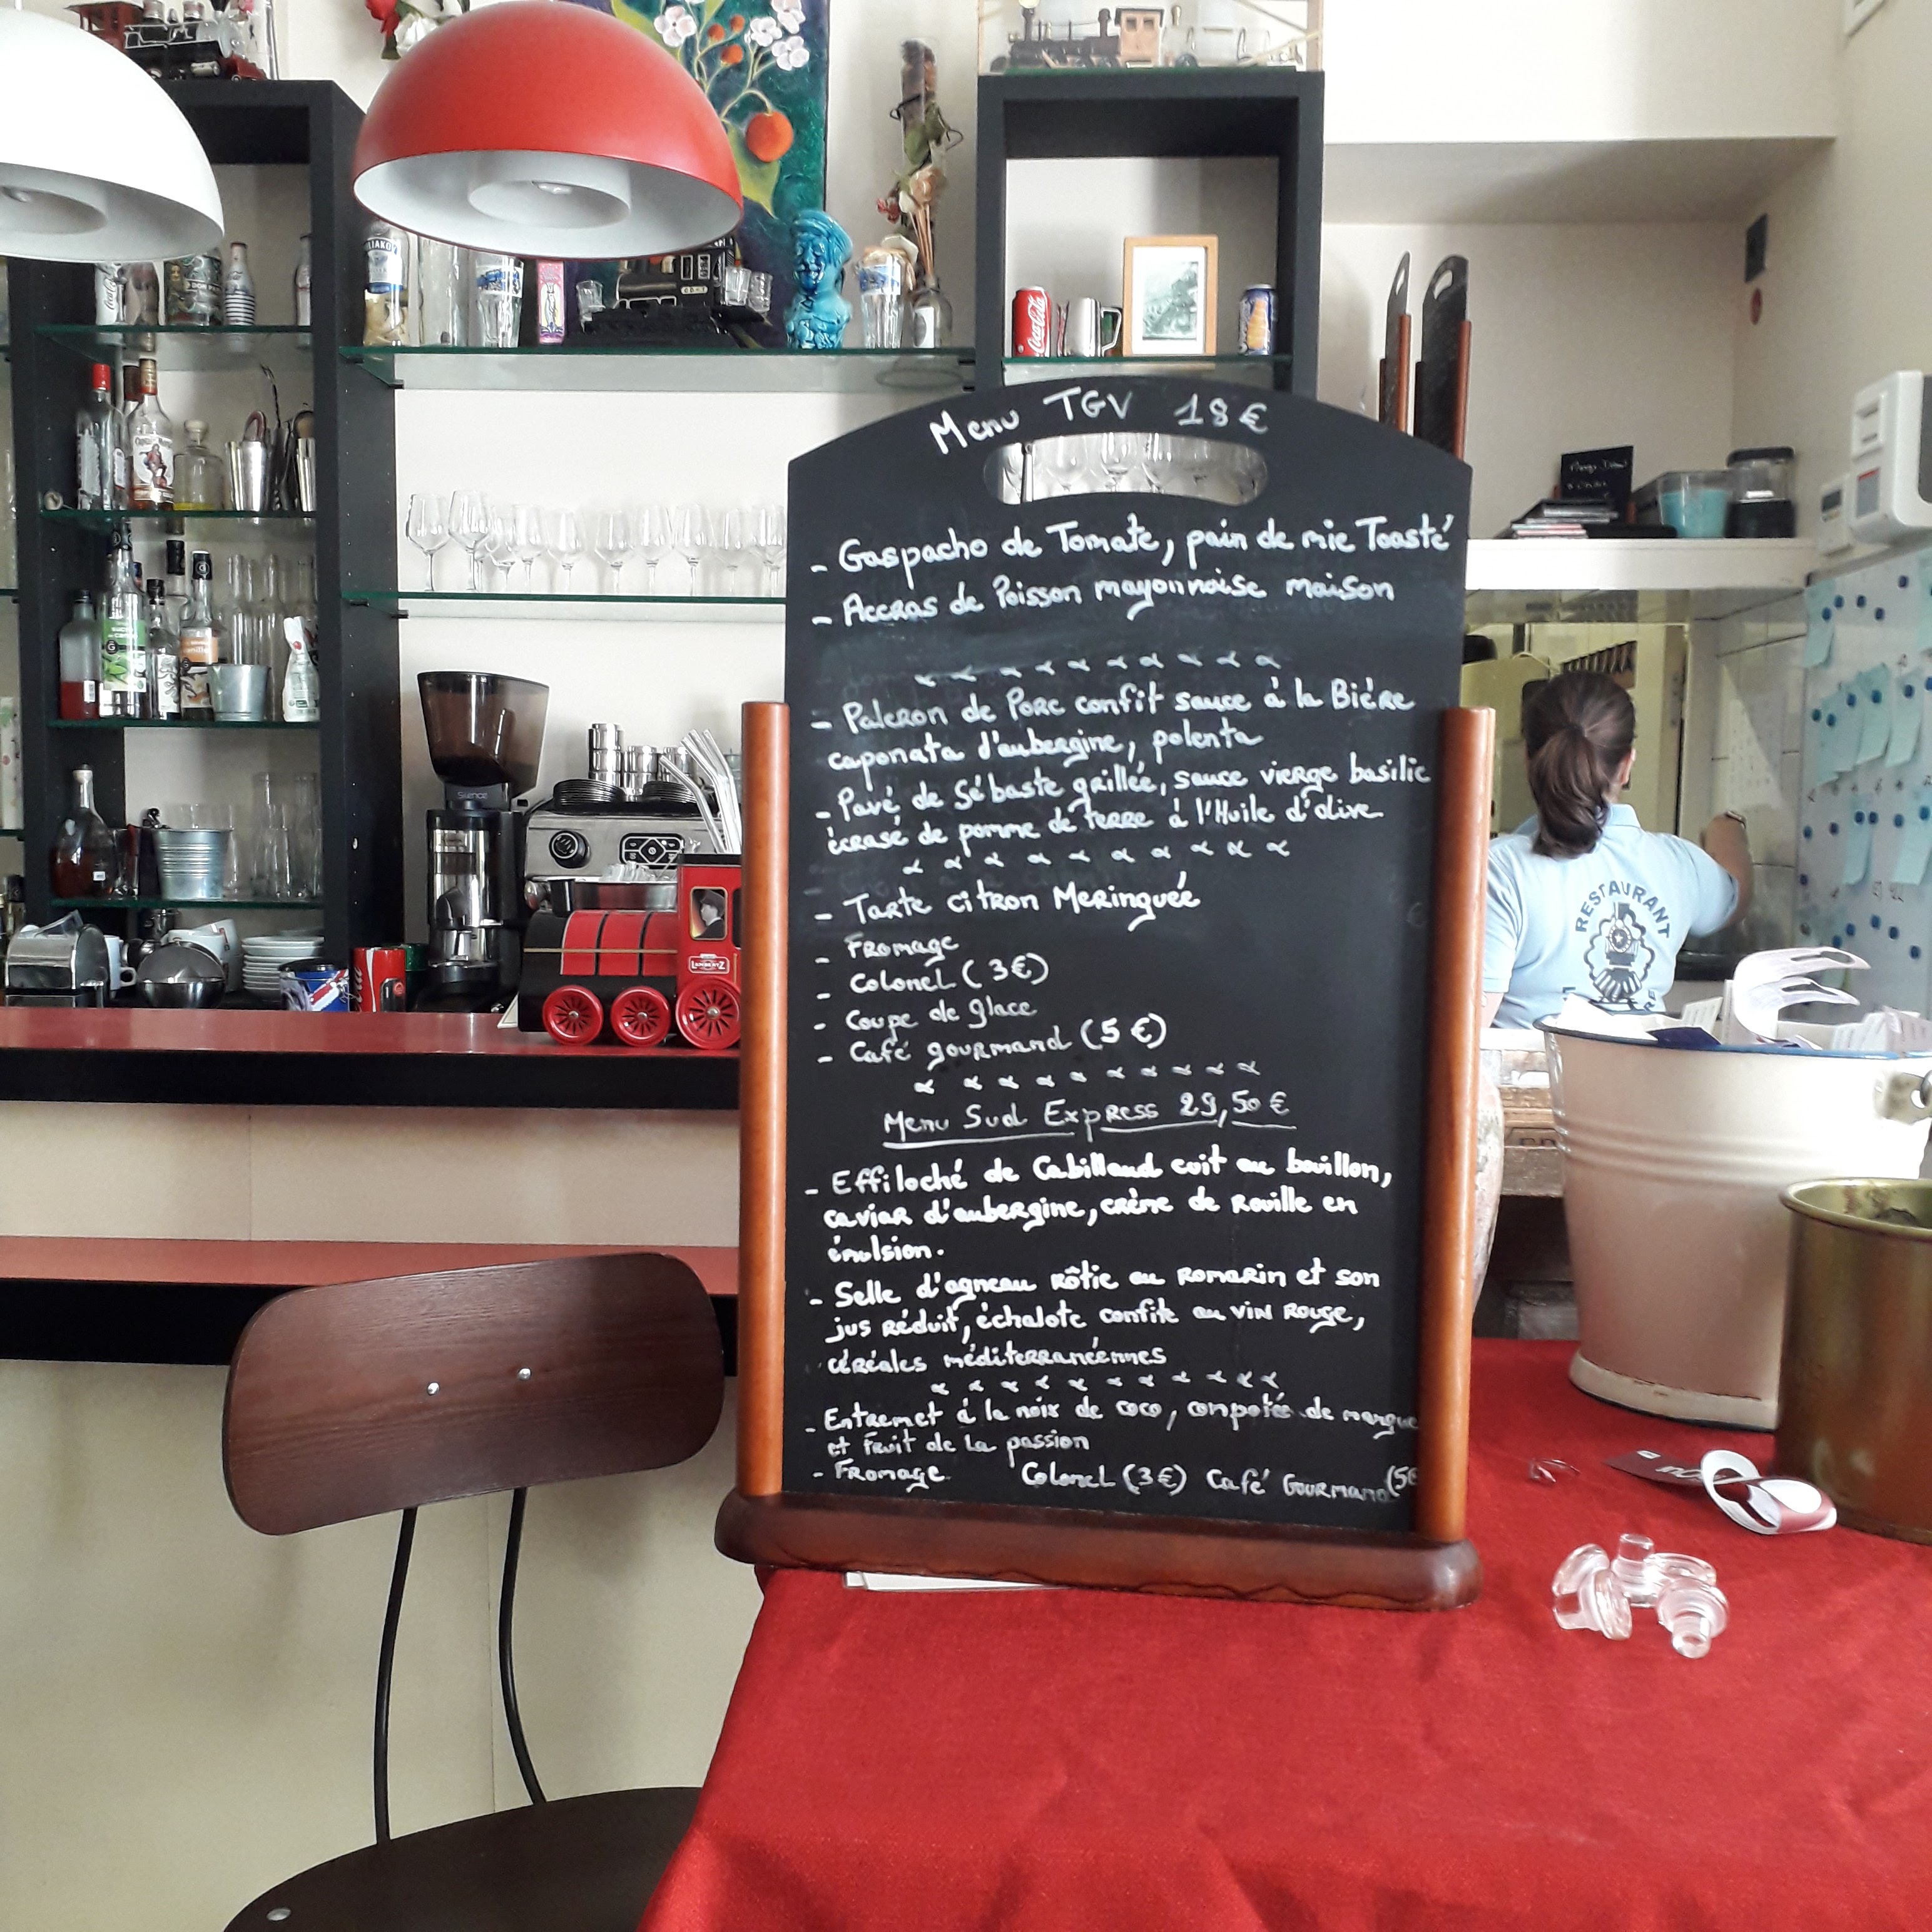 Menu TGV 18€
- Gaspacho de Tomate, pain de mie Toasté
- Accras de Poisson mayonnaise maison
- Paleron de Porc confit sauce à la Bière
caponata d'aubergine, polenta
- Pavé de Sébaste grillée, sauce vierge basilic
écrasé de pomme de terre à l'Huile d'olive
- Tarte citron Meringuée
- Fromage
- Colonel (3€)
- Coupe de glace
- Café gourmand (5€)
Menu Sud Express 29,50€
- Effiloché de Cabillaud cuit au bouillon,
caviar d'aubergine, crème de Rouille en
émulsion.
- Selle d'agneau rôtie au romarin et son
jus réduit, échalote confite au vin rouge,
céréales méditerranéennes
- Entremet à la noix de coco, compotée de mangue
et fruit de la passion
- Fromage Colonel (3€) Café Gourmand (5€
RESTAURANT
Coca-Cola
LAMBERTZ